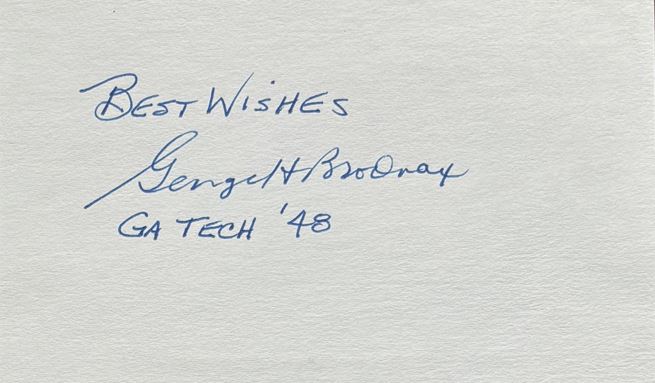 BEST WISHES
George H Brodnax
GA TECH '48